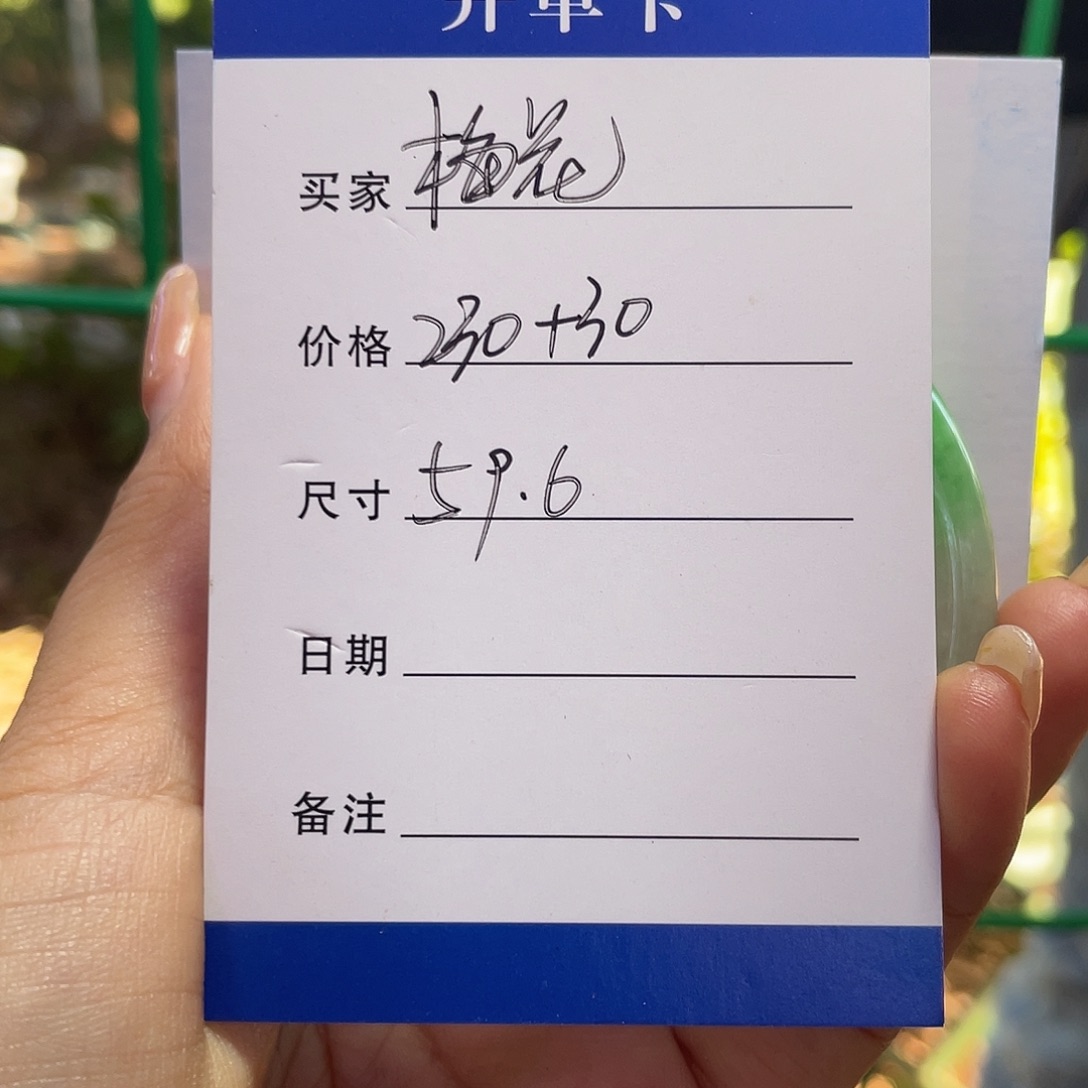 开单卡
买家 梅花
价格 230+30
尺寸 59.6
日期
备注